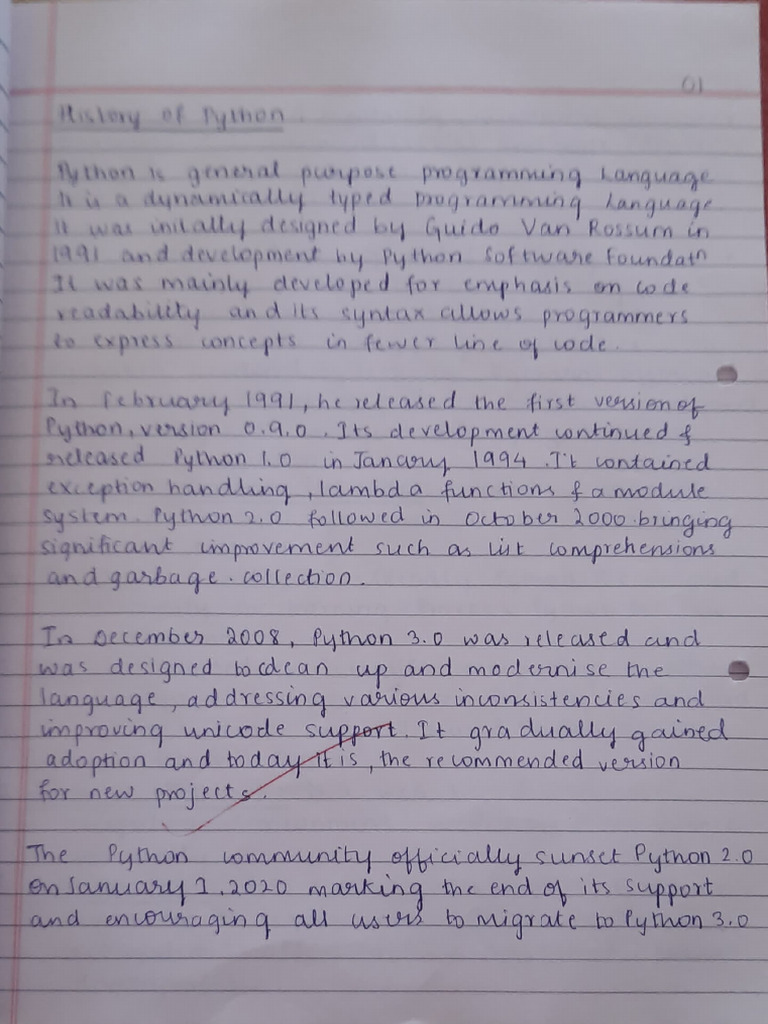 01
History of Python
Python is general purpose programming Language
It is a dynamically typed programming Language
It was initally designed by Guido Van Rossum in
1991 and development by Python Software Foundatn
It was mainly developed for emphasis on code
readability and its syntax allows programmers
to express concepts in fewer line of code.
In February 1991, he released the first version of
Python, version 0.9.0. Its development continued &
released Python 1.0 in Janary 1994. It contained
exception handling, lambda functions & a module
system. Python 2.0 followed in October 2000. bringing
significant improvement such as list comprehensions
and garbage. collection.
In December 2008, Python 3.0 was released and
was designed to clean up and modernise the
language, addressing various inconsistencies and
improving unicode support. It gradually gained
adoption and today it is, the recommended version
for new projects.
The Python community officially sunset Python 2.0
on January 1, 2020 marking the end of its support
and encouraging all users to migrate to Python 3.0